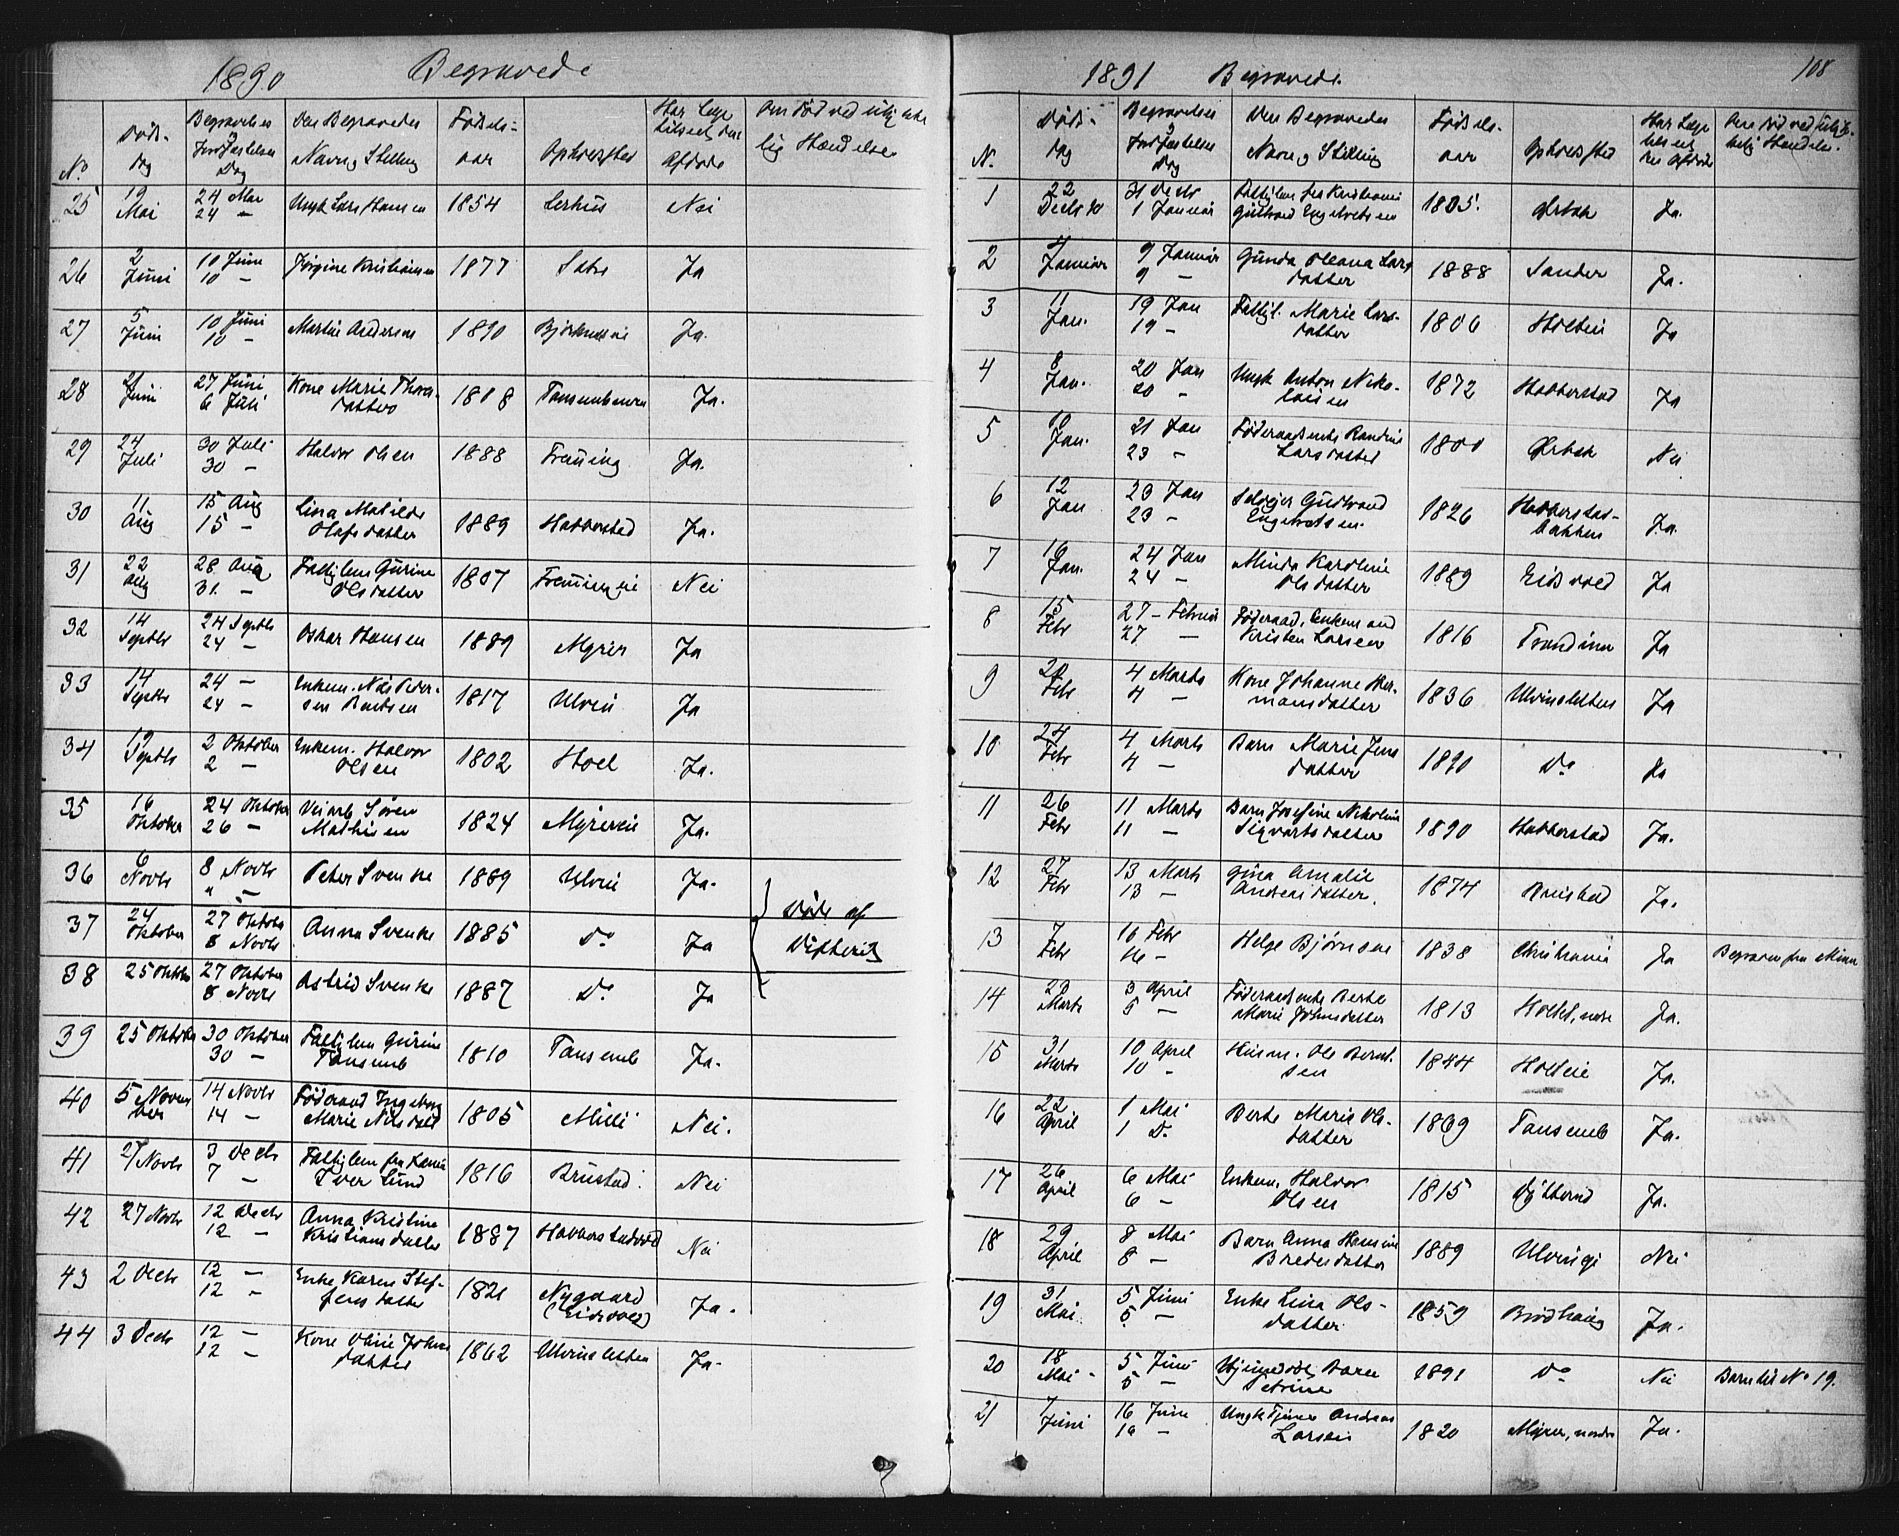 1890 Begravede
No
Døds-
dag
Begravelses
og
Jordfæstelses
Dag
Den Begravedes
Navn og Stilling
Fødsels-
aar
Opholdssted
Har Læge
tilseet den
Afdøde
Om Død ved ulykke-
lig Hændelse
25 19 Mai 24 Mai 24 — Ungk Lars Hansen 1854 Nei
26 2 Juni 10 Juni 10 — Jørgine Kristiansen 1877 Ja
27 5 Juni 10 Juni 10 — Martin Andersen 1890 Ja.
28 21 Juni 27 Juni 6 Juli Kone Marie Thors-
datter 1818 Ja.
29 24 Juli 30 Juli 30 — Halvor Olsen 1888 Frauing Ja.
30 11 Aug 15 Aug 15 — Lina Matilde
Olafsdatter 1889 Habberstad Ja.
31 22 Aug 28 Aug 31. — Fattiglem Gurine
Olsdatter 1807 Nei
32 14 Septbr 24 Septbr 24 — Oskar Hansen 1889 Myrer Ja
33 14 Septbr 24 — 24 — Enkem. Nils Peder-
sen 1817 Ulvin Ja
34 19 Septbr 2 Oktober 2 — Enkem. Halvor
Olsen 1802 Hoel Ja.
35 16 Oktober 24 Oktober 26 — Søren
Mathisen 1824 Myrereie Ja.
36 6 Novbr 8 Novbr " — Peter Svenke 1889 Ulvin Ja.
37 24 Oktober 27 Oktober 8 Novbr Anna Svenke 1885 Do Ja
Døde af
Difterit
38 25 Oktober 27 Oktober 8 Novbr Astrid Svenke 1887 Do Ja
39 25 Oktober 30 Oktober 30 — Fattiglem Gurine
Tønsemb 1810 Tønsemb Ja.
40 5 Novem
ber 14 Novbr 14 — Føderaad Ingeborg
Marie Nilsdatt 1805 Milli Nei.
41 27 Novbr 3 Decbr 7 — Fattiglem fra
Iver Lund 1816 Brustad. Nei
42 27 Novbr 12 Decbr 12 — Anna Kristine
Kristiansdatter 1887 Nei
43 2 Decbr 12 — 12 — Enke Karen Stef-
fensdatter 1821 Nygaard
(Eidsvold) Ja.
44 3 Decbr 12 — 12 — Kone Oline Johns
datter 1862 Ulvinsletten Ja.
1891 Begravede.
108
N.
Døds-
dag
Begravelses
og
Jordfæstelses
Dag
Den Begravedes
Navn og Stilling
Fødsels-
aar
Opholdssted
Har Læge
tilseet
den Afdøde
Om Død ved ulykke-
lig Hændelse.
1 22 Decbr 90 31 Decbr 1 Januar Fattiglem fra Kristiania
Gulbrand Engebretsen 1805. Ørbæk Ja.
2 4 Januar 9 Januar 9 — Gunda Oleana Lars
datter 1888 Sander Ja.
3 11 Jan. 19 Jan 19 — Fattigl. Marie Lars-
datter 1806 Holtein Ja
4 8 Jan. 20 Jan 20 — Ungk Anton Niko-
laisen 1872 Habberstad Ja
5 10 Jan. 21 Jan 23 — Føderaadsenke Randine
Larsdatter 1800 Ørbæk Nei
6 12 Jan 23 Jan 23 — Selveier Gudbrand
Engebretsen. 1826 Habberstad-
bakken Ja
7 16 Jan. 24 Jan 24 — Minda Karoline
Olsdatter 1889 Eidsvold Ja
8 15 Febr 27 — Februar 27 — Føderaad, Enkemand
Kristen Larsen 1816 Ja
9 20 Febr 4 Marts 4 — Kone Johanne Her-
mansdatter 1836 Ulvinsletten Ja
10 24 Febr 4 Marts 4 — Barn Marie Jens
datter 1890 Do Ja
11 26 Febr 11 Marts 11 — Barn Josefine Nikoline
Sigvartsdatter 1890 Habberstad Ja.
12 27 Febr 13 Marts 13 — Gina Amalie
Andreasdatter. 1874 Ja.
13 7 Febr 16 Febr 16 — Helge Bjørnsen 1838 Christiania Ja Begraven fra Minne
14 23 Marts 3 April 5 — Føderaadsenke Berte
Marie Johnsdatter 1813 Ja.
15 31 Marts 10 April 10 — Husm. Ole Bernt-
sen 1844 Holteie Ja.
16 22 April 1 Mai 1 D. Berte Marie Ols-
datter 1869 Tønsemb Ja.
17 26 April 6 Mai 6 — Enkem. Halvor
Olsen 1815 Ja.
18 29 April 8 Mai 8 — Barn Anna Hansine
Bredesdatter 1889 Nei
19 31 Mai 5 Juni 5 — Enke Lina Ols-
datter 1859 Ja.
20 18 Mai - 5 Juni 5 — Hjemmedøbt Barn
Petrine 1891 Do Nei Barn til No 19.
21 7 Juni 16 Juni 16 — Ungk Tjener Andreas
Larsen 1820 Myrer, nordre Ja.